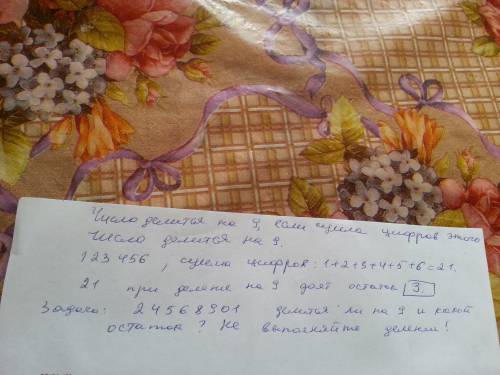 Число делится на 9, если сумма цифров этого
числа делится на 9.
123456, сумма цифров: 1+2+3+4+5+6=21.
21 при делении на 9 даёт остаток 3.
Задача: 24568901 делится ли на 9 и какой
остаток? Не выполняйте деления!